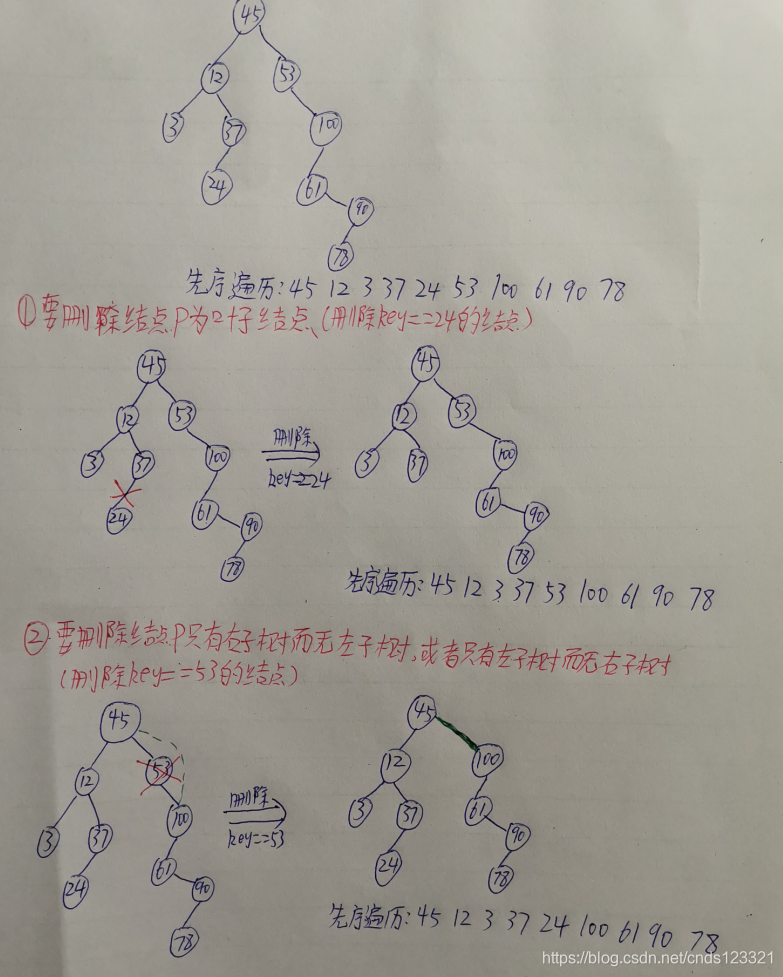 45
12 53
3 37 100
24 61 90
78
先序遍历: 45 12 3 37 24 53 100 61 90 78
①要删除结点P为叶子结点、(删除key==24的结点)
45 45
12 53 删除 12 53
3 37 100 key==24 3 37 100
24 61 90 61 90
78 78
先序遍历: 45 12 3 37 53 100 61 90 78
②要删除结点P只有右子树而无左子树,或者只有左子树而无右子树
(删除key==53的结点)
45 45
12 53 12 100
3 37 100 删除 key==53 3 37 61
24 61 90 24 90
78 78
先序遍历: 45 12 3 37 24 100 61 90 78
https://blog.csdn.net/cnds123321